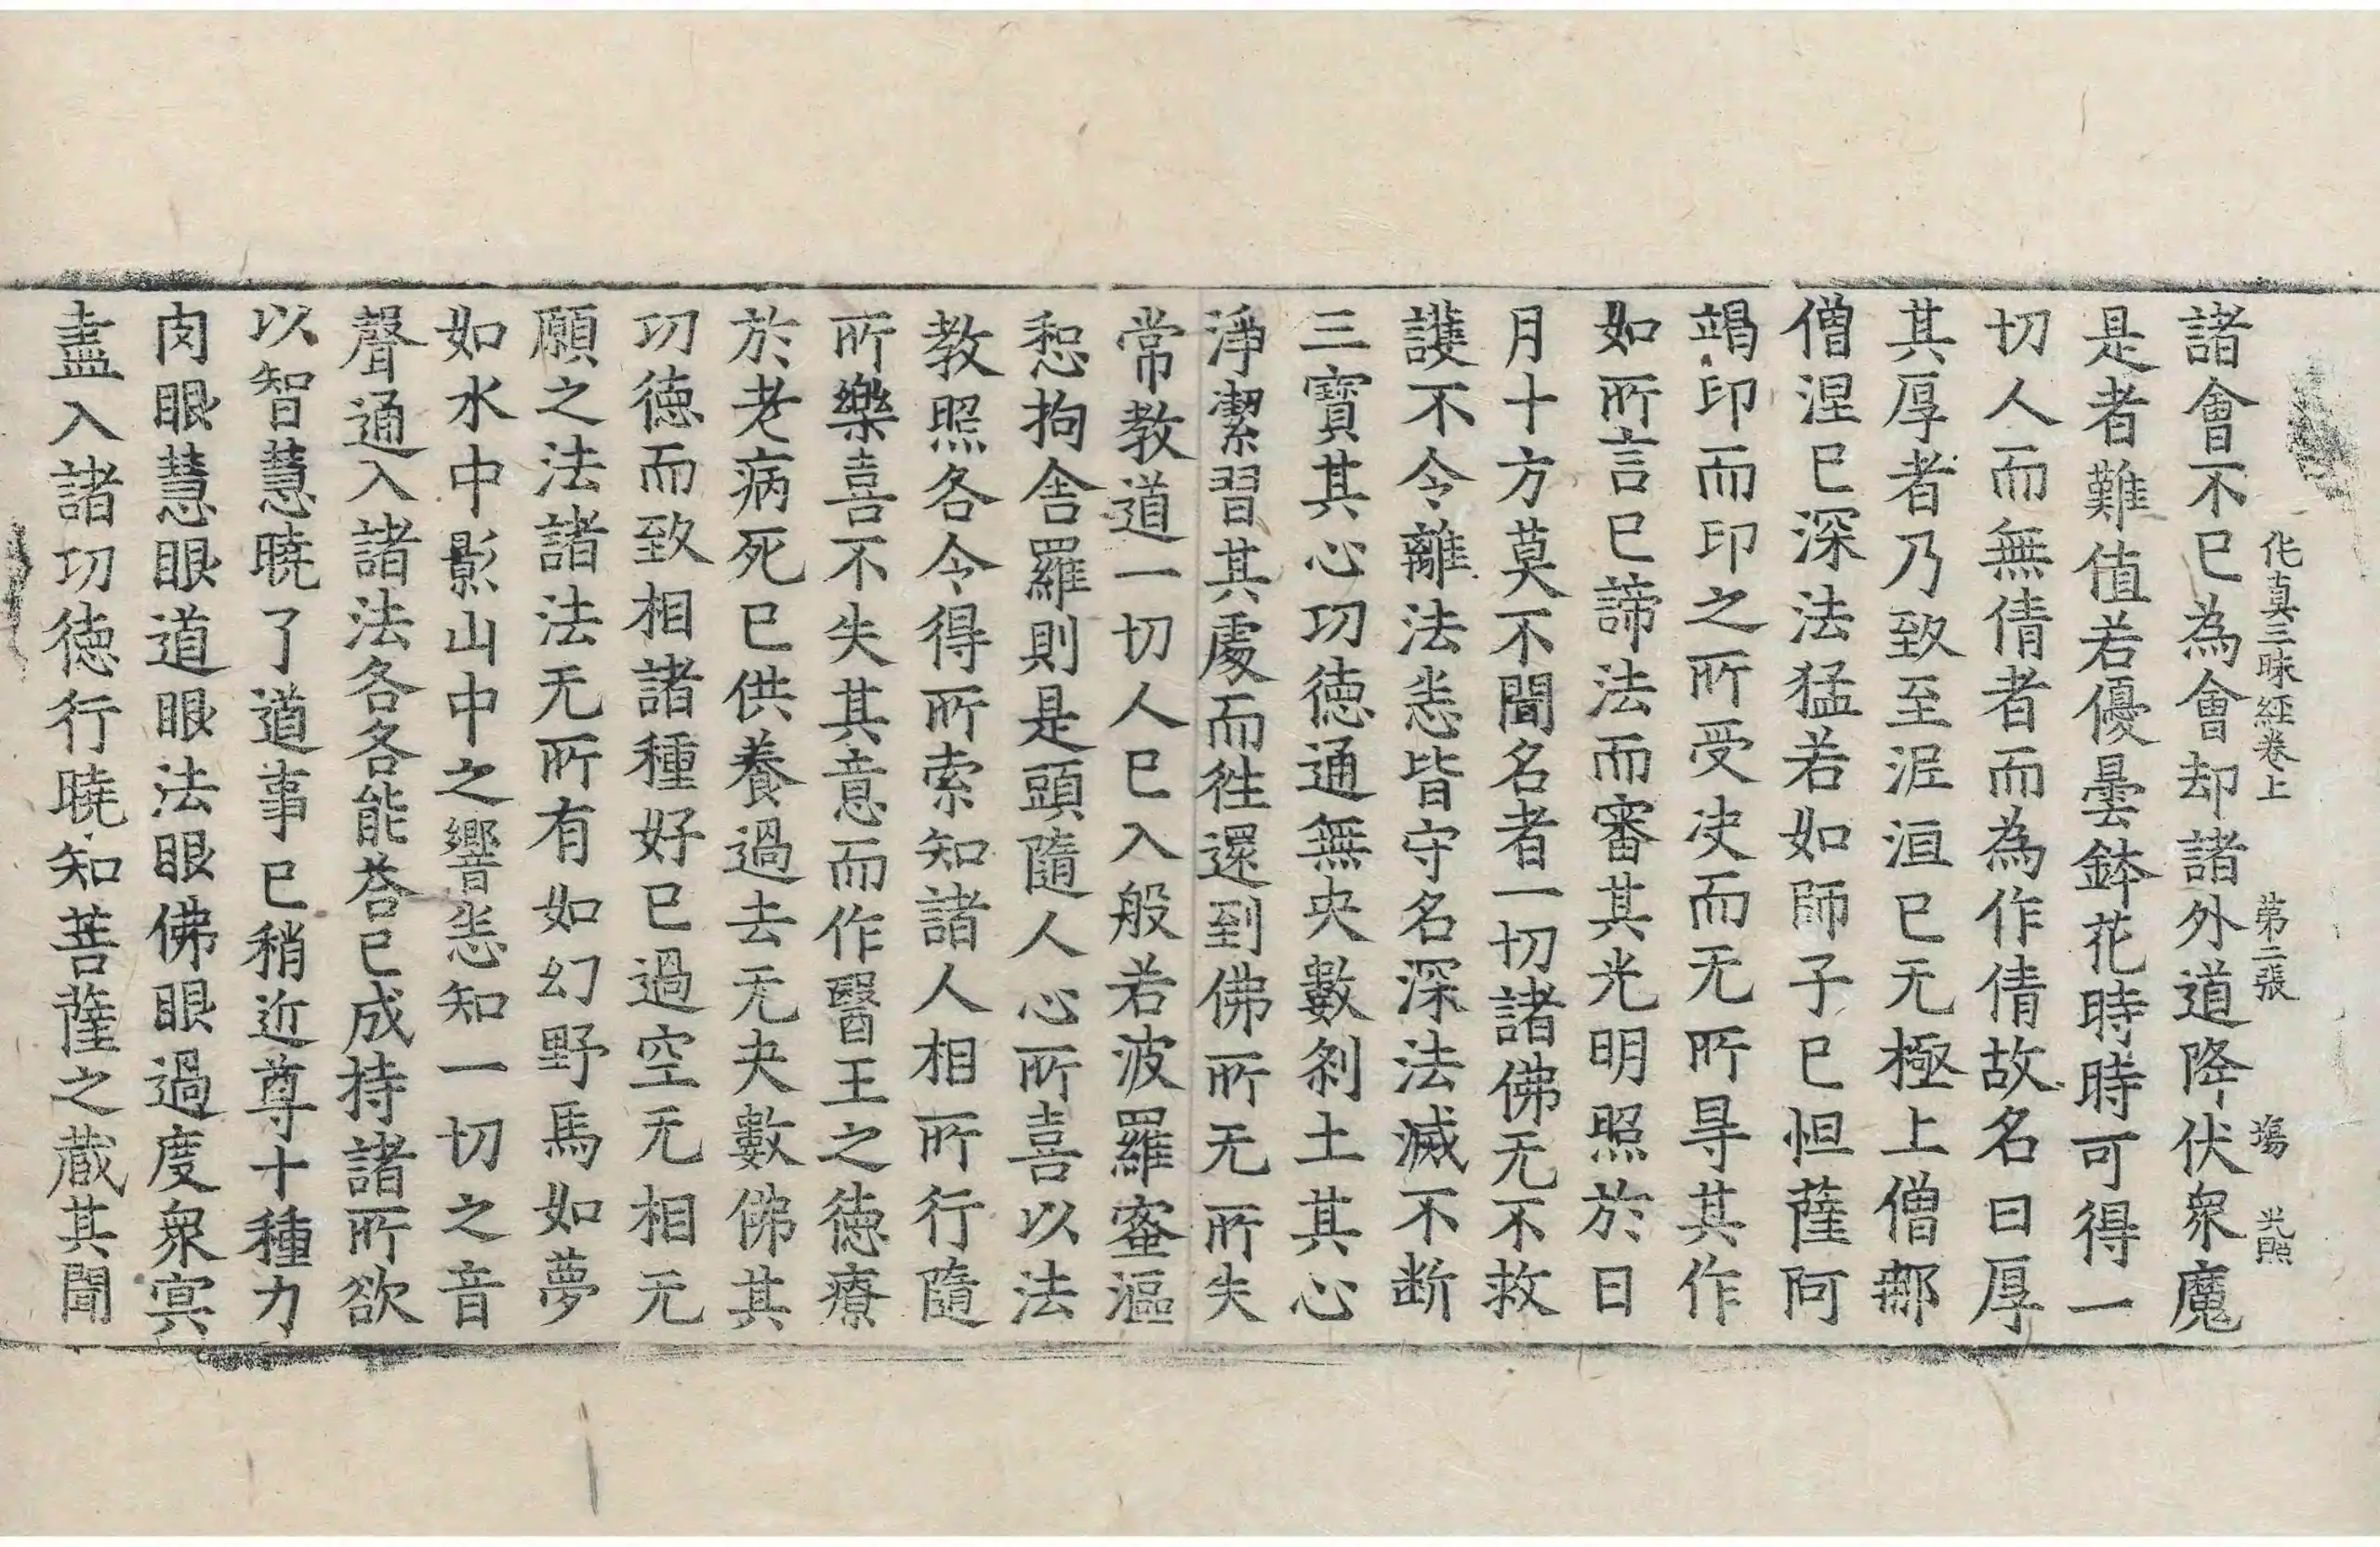 仛真三昧經卷上 第二張 塲 光照
諸會不已為會却諸外道降伏衆魔
是者難值若優曇鉢花時時可得一
切人而無倩者而為作倩故名曰厚
其厚者乃致至泥洹已无極上僧那
僧涅已深法猛若如師子已怛薩阿
竭印而印之所受决而无所㝵其作
如所言已諦法而審其光明照於日
月十方莫不聞名者一切諸佛无不救
護不令離法恙皆守名深法滅不断
三寶其心功徳通無央數刹土其心
淨潔習其處而徃還到佛所无所失
常教道一切人已入般若波羅蜜漚
惒拘舍羅則是頭隨人心所喜以法
教照各令得所索知諸人相所行隨
所樂喜不失其意而作醫王之徳療
於老病死已供養過去无央數佛其
功徳而致相諸種好已過空无相无
願之法諸法无所有如幻野馬如夢
如水中影山中之響恙知一切之音
聲通入諸法各各能荅已成持諸所欲
以智慧曉了道事已稍近尊十種力
肉眼慧眼道眼法眼佛眼過度衆㝠
盡入諸功徳行曉知菩薩之蔵其聞